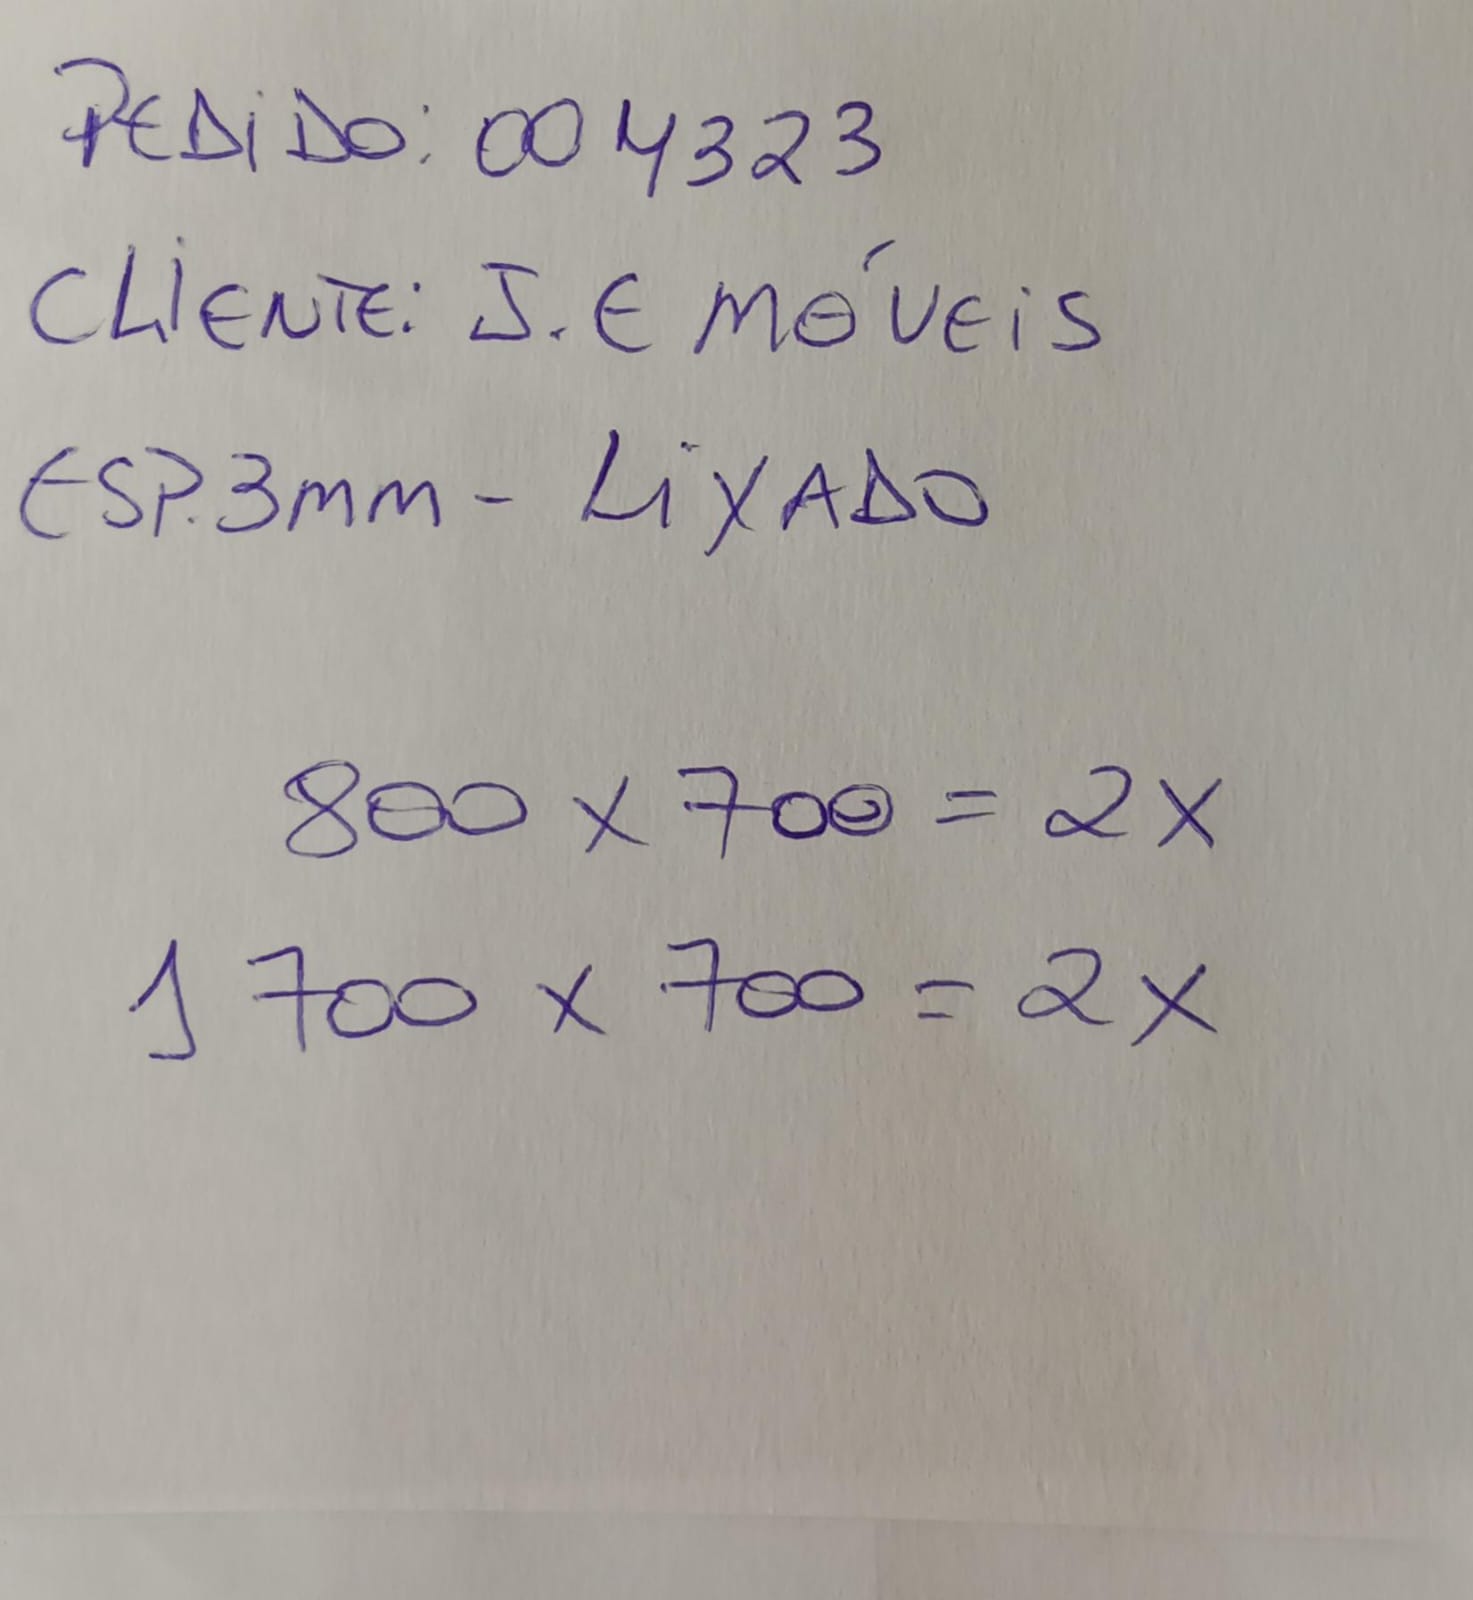 PEDIDO: 004323
CLIENTE: J.E MÓVEIS
ESP. 3mm - LIXADO
800 x 700 = 2x
1700 x 700 = 2x